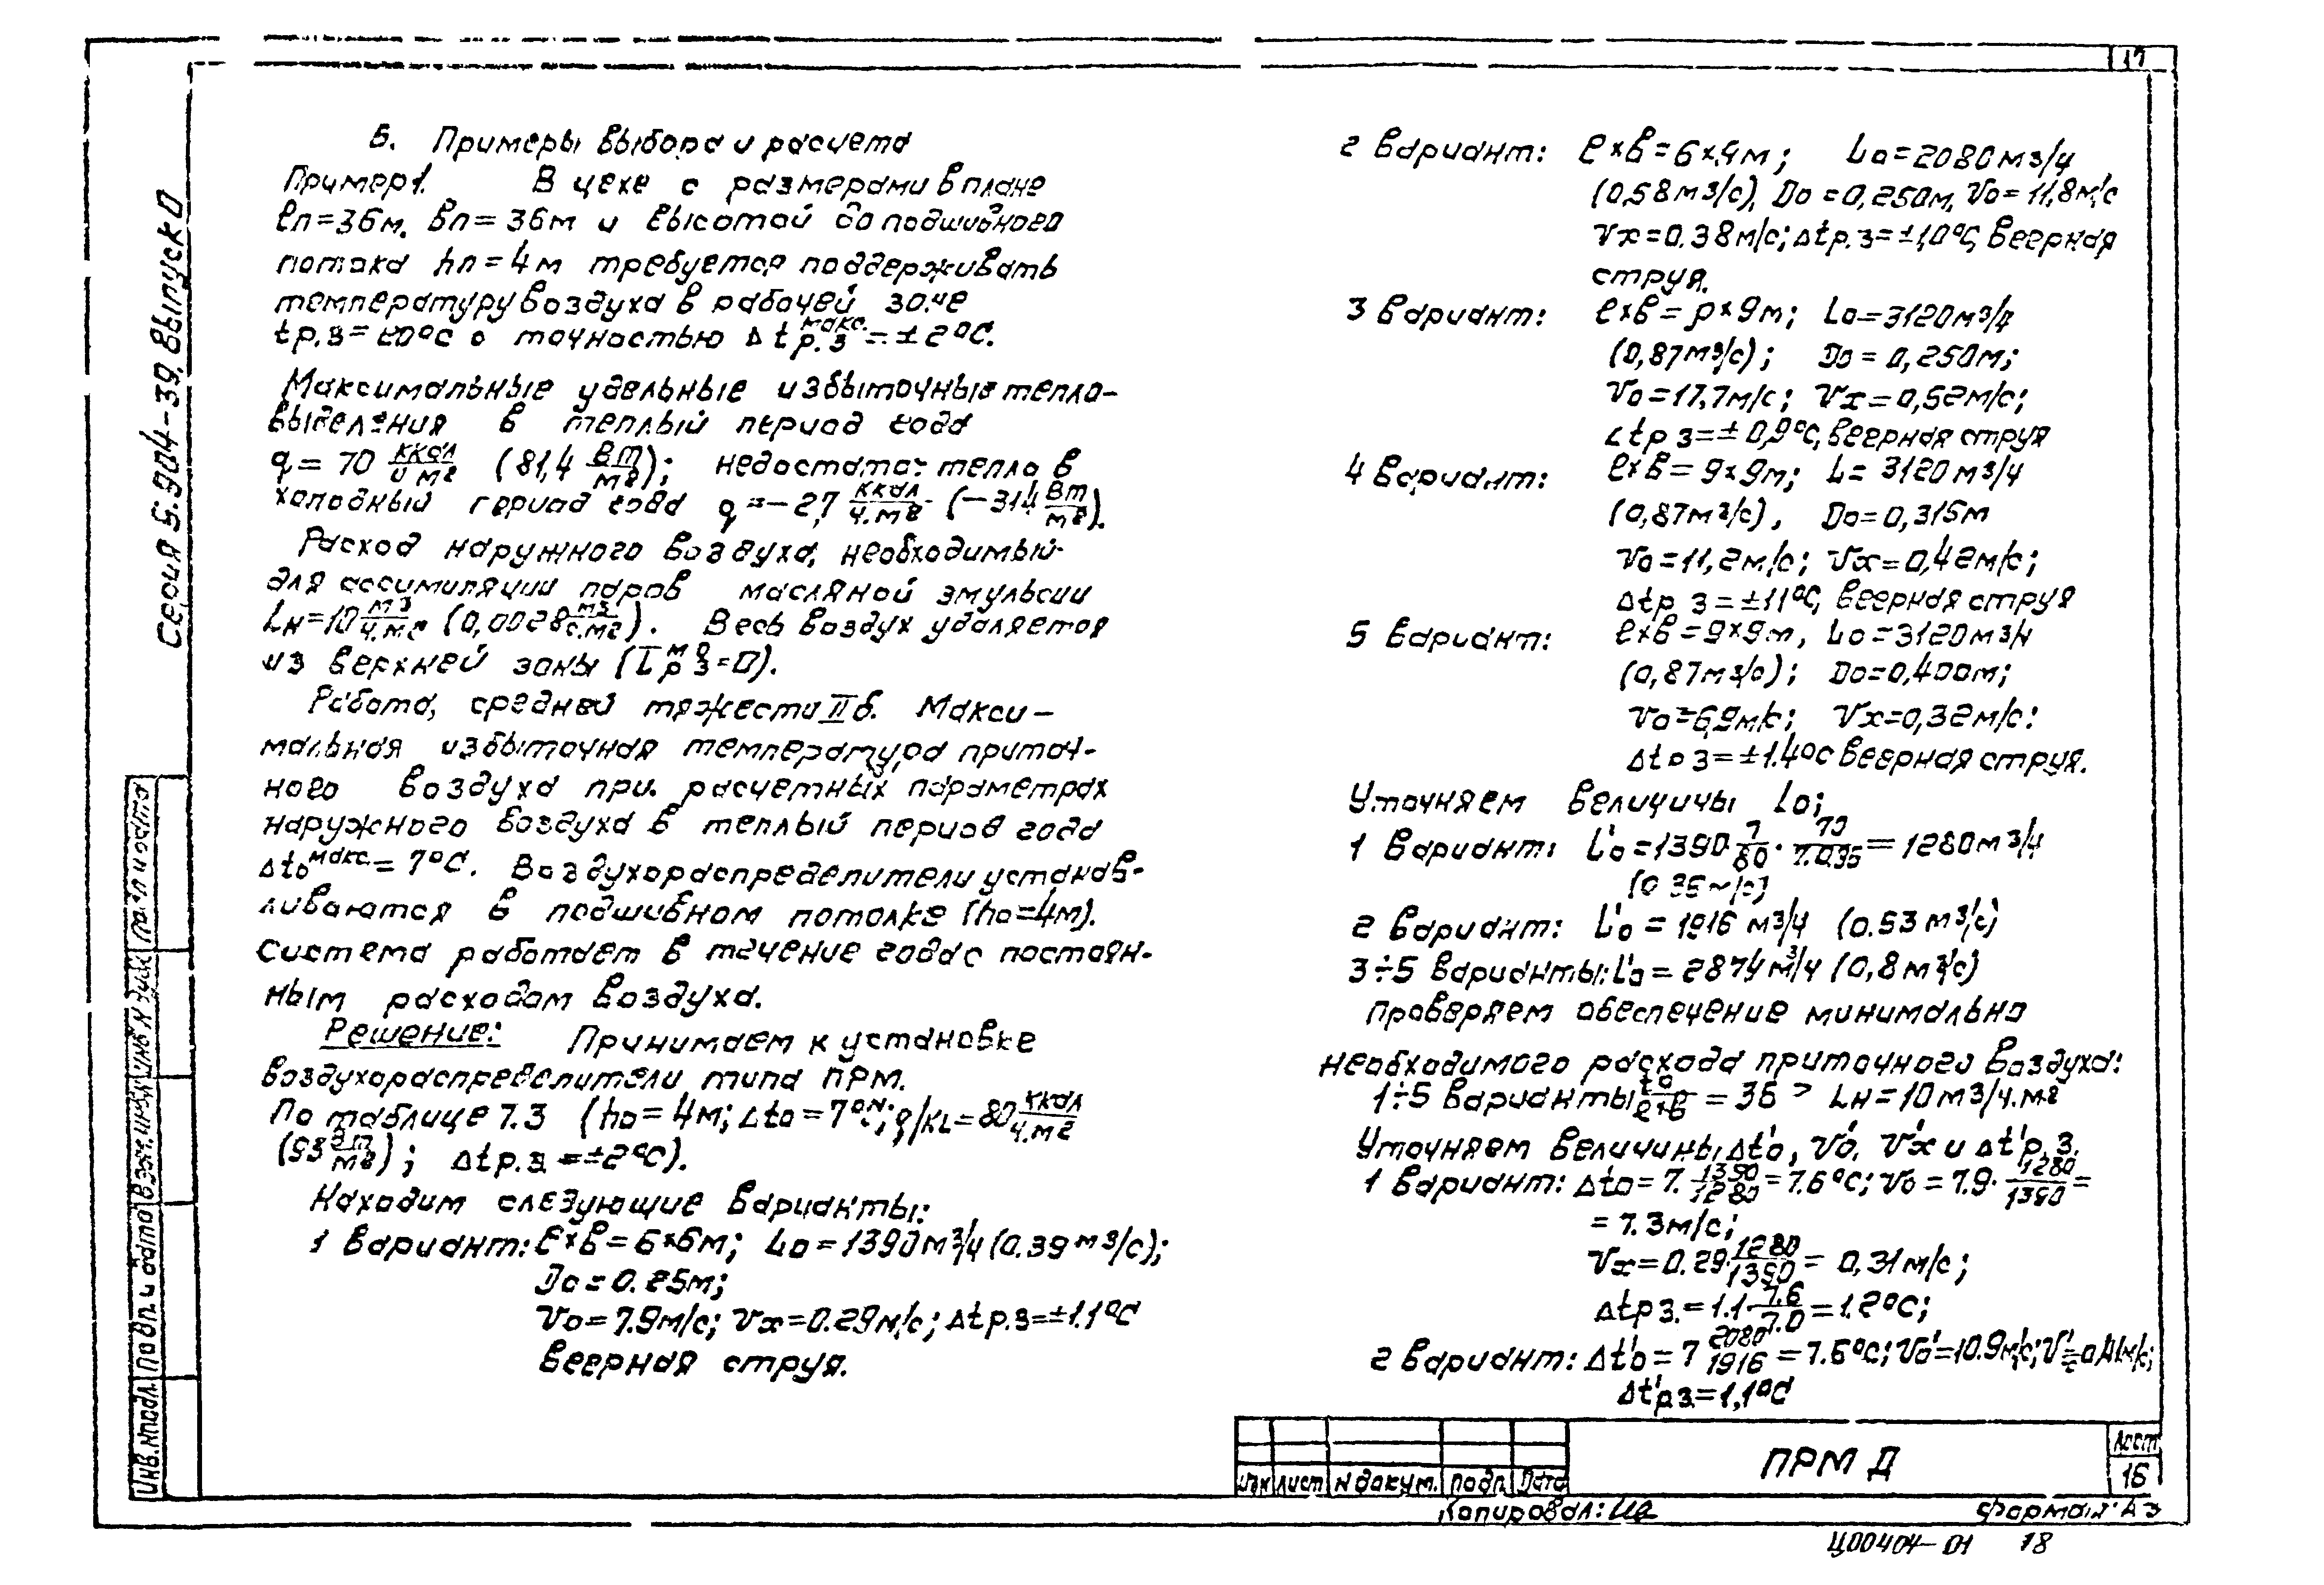 17
5. Примеры выбора и расчета
Пример 1. В цехе с размерами в плане
ℓп=36м, вп=36м и высотой до подшивного
потока hп=4м требуется поддерживать
температуру воздуха в рабочей зоне
tр.з=20°С с точностью Δtр.з макс.=±2°С.
Максимальные удельные избыточные тепло-
выделения в теплый период года
q=70 ккал/ч м² (81,4 Вт/м²); недостаток тепла в
холодный период года q=-27 ккал/ч.м² (-31,4 Вт/м²).
Расход наружного воздуха, необходимый
для ассимиляции паров масляной эмульсии
Lн=10 м³/ч.м² (0,0028 м³/с.м²). Весь воздух удаляется
из верхней зоны (
Работа, средней тяжести IIб. Макси-
мальная избыточная температура приточ-
ного воздуха при расчетных параметрах
наружного воздуха в теплый период года
Δtо макс.=7°С. Воздухораспределители устанав-
ливаются в подшивном потолке (hо=4м).
Система работает в течение года с постоян-
ным расходом воздуха.
Решение: Принимаем к установке
воздухораспределители типа ПРМ.
По таблице 7.3 (hо=4м; Δtо=7°С; q/KL=80 ккал/ч.м²
(93 Вт/м²); Δtр.з=±2°С).
Находим следующие варианты:
1 вариант: ℓ×в=6×6м; Lо=1390м³/ч (0.39 м³/с);
Dо=0.25м;
Vо=7.9м/с; Vх=0.29м/с; Δtр.з=±1.1°С
веерная струя.
2 вариант: ℓ×в=6×9м; Lо=2080м³/ч
(0,58м³/с), Dо=0,250м, Vо=11,8м/с
Vх=0.38м/с; Δtр.з=±1,0°С, веерная
струя.
3 вариант: ℓ×в=р×9м; Lо=3120м³/ч
(0,87м³/с); Dо=0,250м;
Vо=17,7м/с; Vх=0,52м/с;
Δtр з=±0,9°С, веерная струя
4 вариант: ℓ×в=9×9м; L=3120м³/ч
(0,87м³/с), Dо=0,315м
Vо=11,2м/с; Vх=0,42м/с;
Δtр з=±1.1°С, веерная струя
5 вариант: ℓ×в=9×9м, Lо=3120м³/ч
(0,87м³/с); Dо=0,400м;
Vо=6,9м/с; Vх=0,32м/с:
Δtр з=±1.4°С веерная струя.
Уточняем величины Lо;
1 вариант: L'о=1390·7/80·70/7.0,95=1280м³/ч
2 вариант: L'о=1916 м³/ч (0.53 м³/с)
3÷5 варианты: L'о=2874м³/ч (0,8м³/с)
Проверяем обеспечение минимально
необходимого расхода приточного воздуха:
1÷5 варианты Lо/ℓ×в=36 > Lн=10м³/ч.м²
Уточняем величины Δt'о, V'о, V'х и Δt'р.з.
1 вариант: Δtо=7.1390/1280=7.6°С; Vо=7.9·1280/1390=
=7.3м/с;
Vх=0.29·1280/1390=0,31м/с;
Δtр з.=1.1·7.6/7.0=1.2°С;
2 вариант: Δt'о=7 2080/1916=7.6°С; V'о=10.9м/с;
Δt'р.з.=1,1°С
Серия 5.904-39, Выпуск 0
Инв.Nподл. Подп. и дата Взам.инв.N
Изм Лист N докум. Подп. Дата
ПРМ Д
Лист
16
Копировал:
Формат: А3
Ц00404-01 18